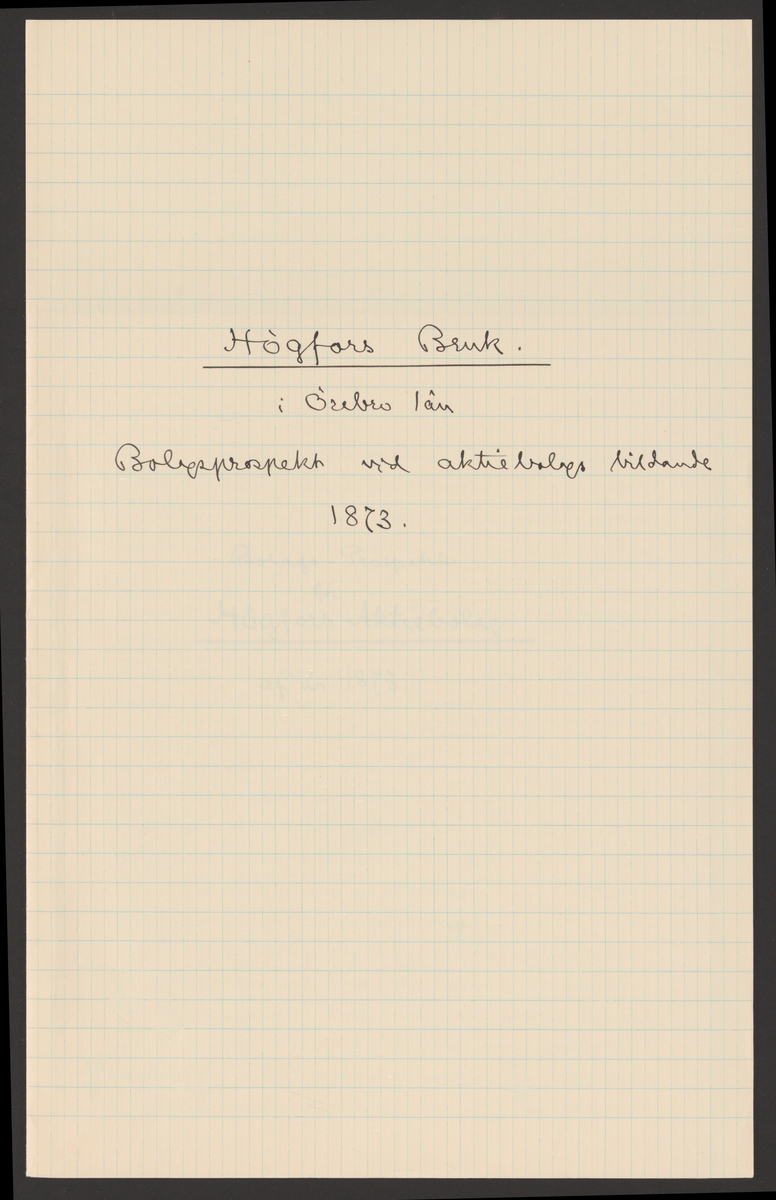 Högfors Bruk.
i Örebro län
Bolagsprospekt vid aktiebolags bildande
1873.